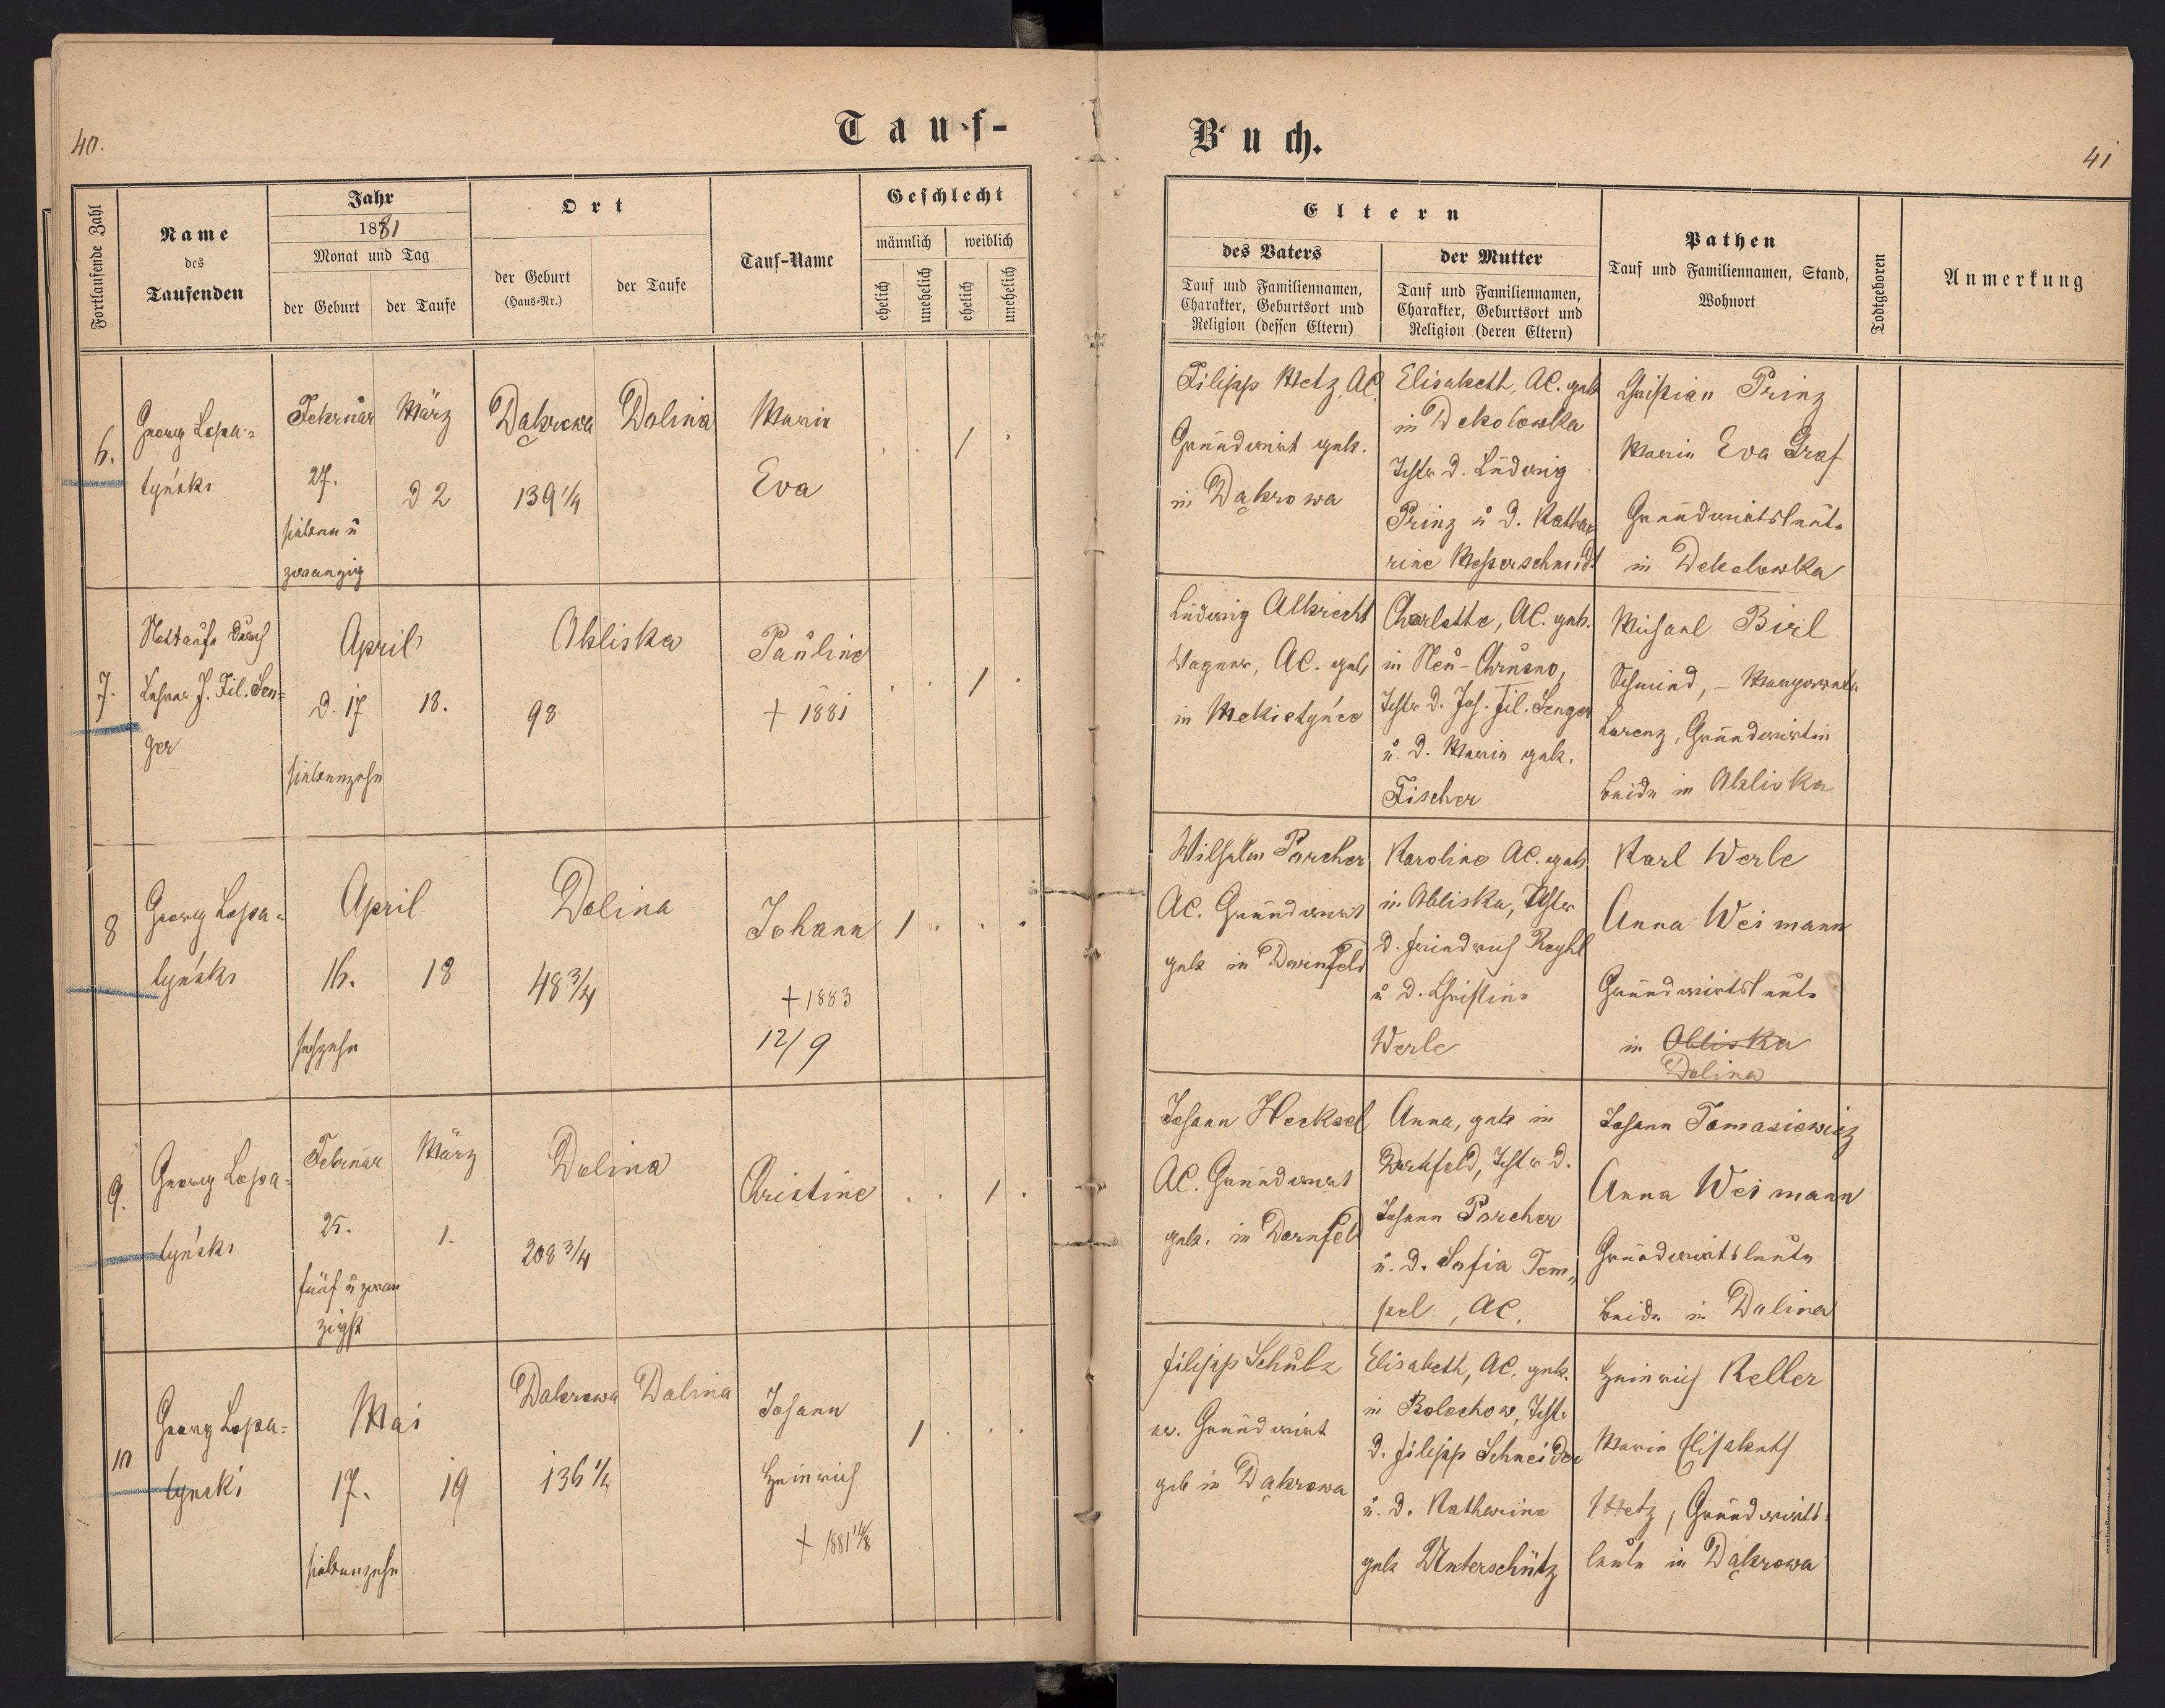 40.
Tauf-
Buch.
41
Fortlaufende Zahl
Name
des
Taufenden
Jahr
1881
Monat und Tag
der Geburt
der Taufe
Ort
der Geburt
(Haus-Nr.)
der Taufe
Tauf-Name
Geschlecht
männlich
weiblich
ehelich
unehelich
ehelich
unehelich
Eltern
des Vaters
Tauf und Familiennamen,
Charakter, Geburtsort und
Religion (dessen Eltern)
der Mutter
Tauf und Familiennamen,
Charakter, Geburtsort und
Religion (deren Eltern)
Pathen
Tauf und Familiennamen, Stand,
Wohnort
Todtgeboren
Anmerkung
6.
Georg Lopa-
tyński
Februar
27.
sieben u
zwanzig
März
d 2
Dąbrowa
139 1/4
Dolina
Maria
Eva
1
Filipp Metz, AC.
Grundwirt geb.
in Dąbrowa
Elisabeth, AC. geb
in Debolowka
Tchtr d. Ludwig
Prinz u d. Katha-
rine Messerschmidt
Christian Prinz
Maria Eva Graf
Grundwirtsleute
in Debolowka
7.
Nottaufe durch
Lehrer J. Fil. Sen-
ger
April
d. 17
siebenzehn
18.
Obliska
98
Pauline
+ 1881
1
Ludwig Albrecht
Wagner, AC. geb
in
Charlotte, AC. geb.
in Neu-Chrusno,
Tchtr d. Joh. Fil. Senger
u. d. Maria geb.
Fischer
Michael Birl
Schmied, - Margareta
Lorenz, Grundwirtin
beide in Obliska
8
Georg Lopa-
tyński
April
16.
sechzehn
18
Dolina
48 3/4
Johann
+ 1883
12/9
1
Wilhelm Porcher
AC. Grundwirt
geb in Dornfeld
Karoline AC. geb
in Obliska, Tchtr
d. Friedrich Reyhl
u d. Christine
Werle
Karl Werle
Anna Weimann
Grundwirtsleute
in Obliska
Dolina
9.
Georg Lopa-
tyński
Februar
25.
fünf u zwan
zigst
März
1.
Dolina
208 3/4
Christine
1
Johann Hecksel
AC. Grundwirt
geb. in Dornfeld
Anna, geb in
Dornfeld, Tchtr d.
Johann Porcher
u. d. Sofia Tem-
pel, AC.
Johann Tomasiewicz
Anna Weimann
Grundwirtsleute
beide in Dolina
10
Georg Lopa-
tynski
Mai
17.
siebenzehn
19
Dabrowa
136 1/4
Dolina
Johann
Heinrich
+ 1881 14/8
1
Filipp Schulz
Grundwirt
geb in Dąbrowa
Elisabeth, AC. geb.
in Bolechow, Tcht.
d. Filipp Schneider
u. d. Katharina
geb Unterschütz
Heinrich Keller
Maria Elisabeth
Metz, Grundwirts-
leute in Dąbrowa